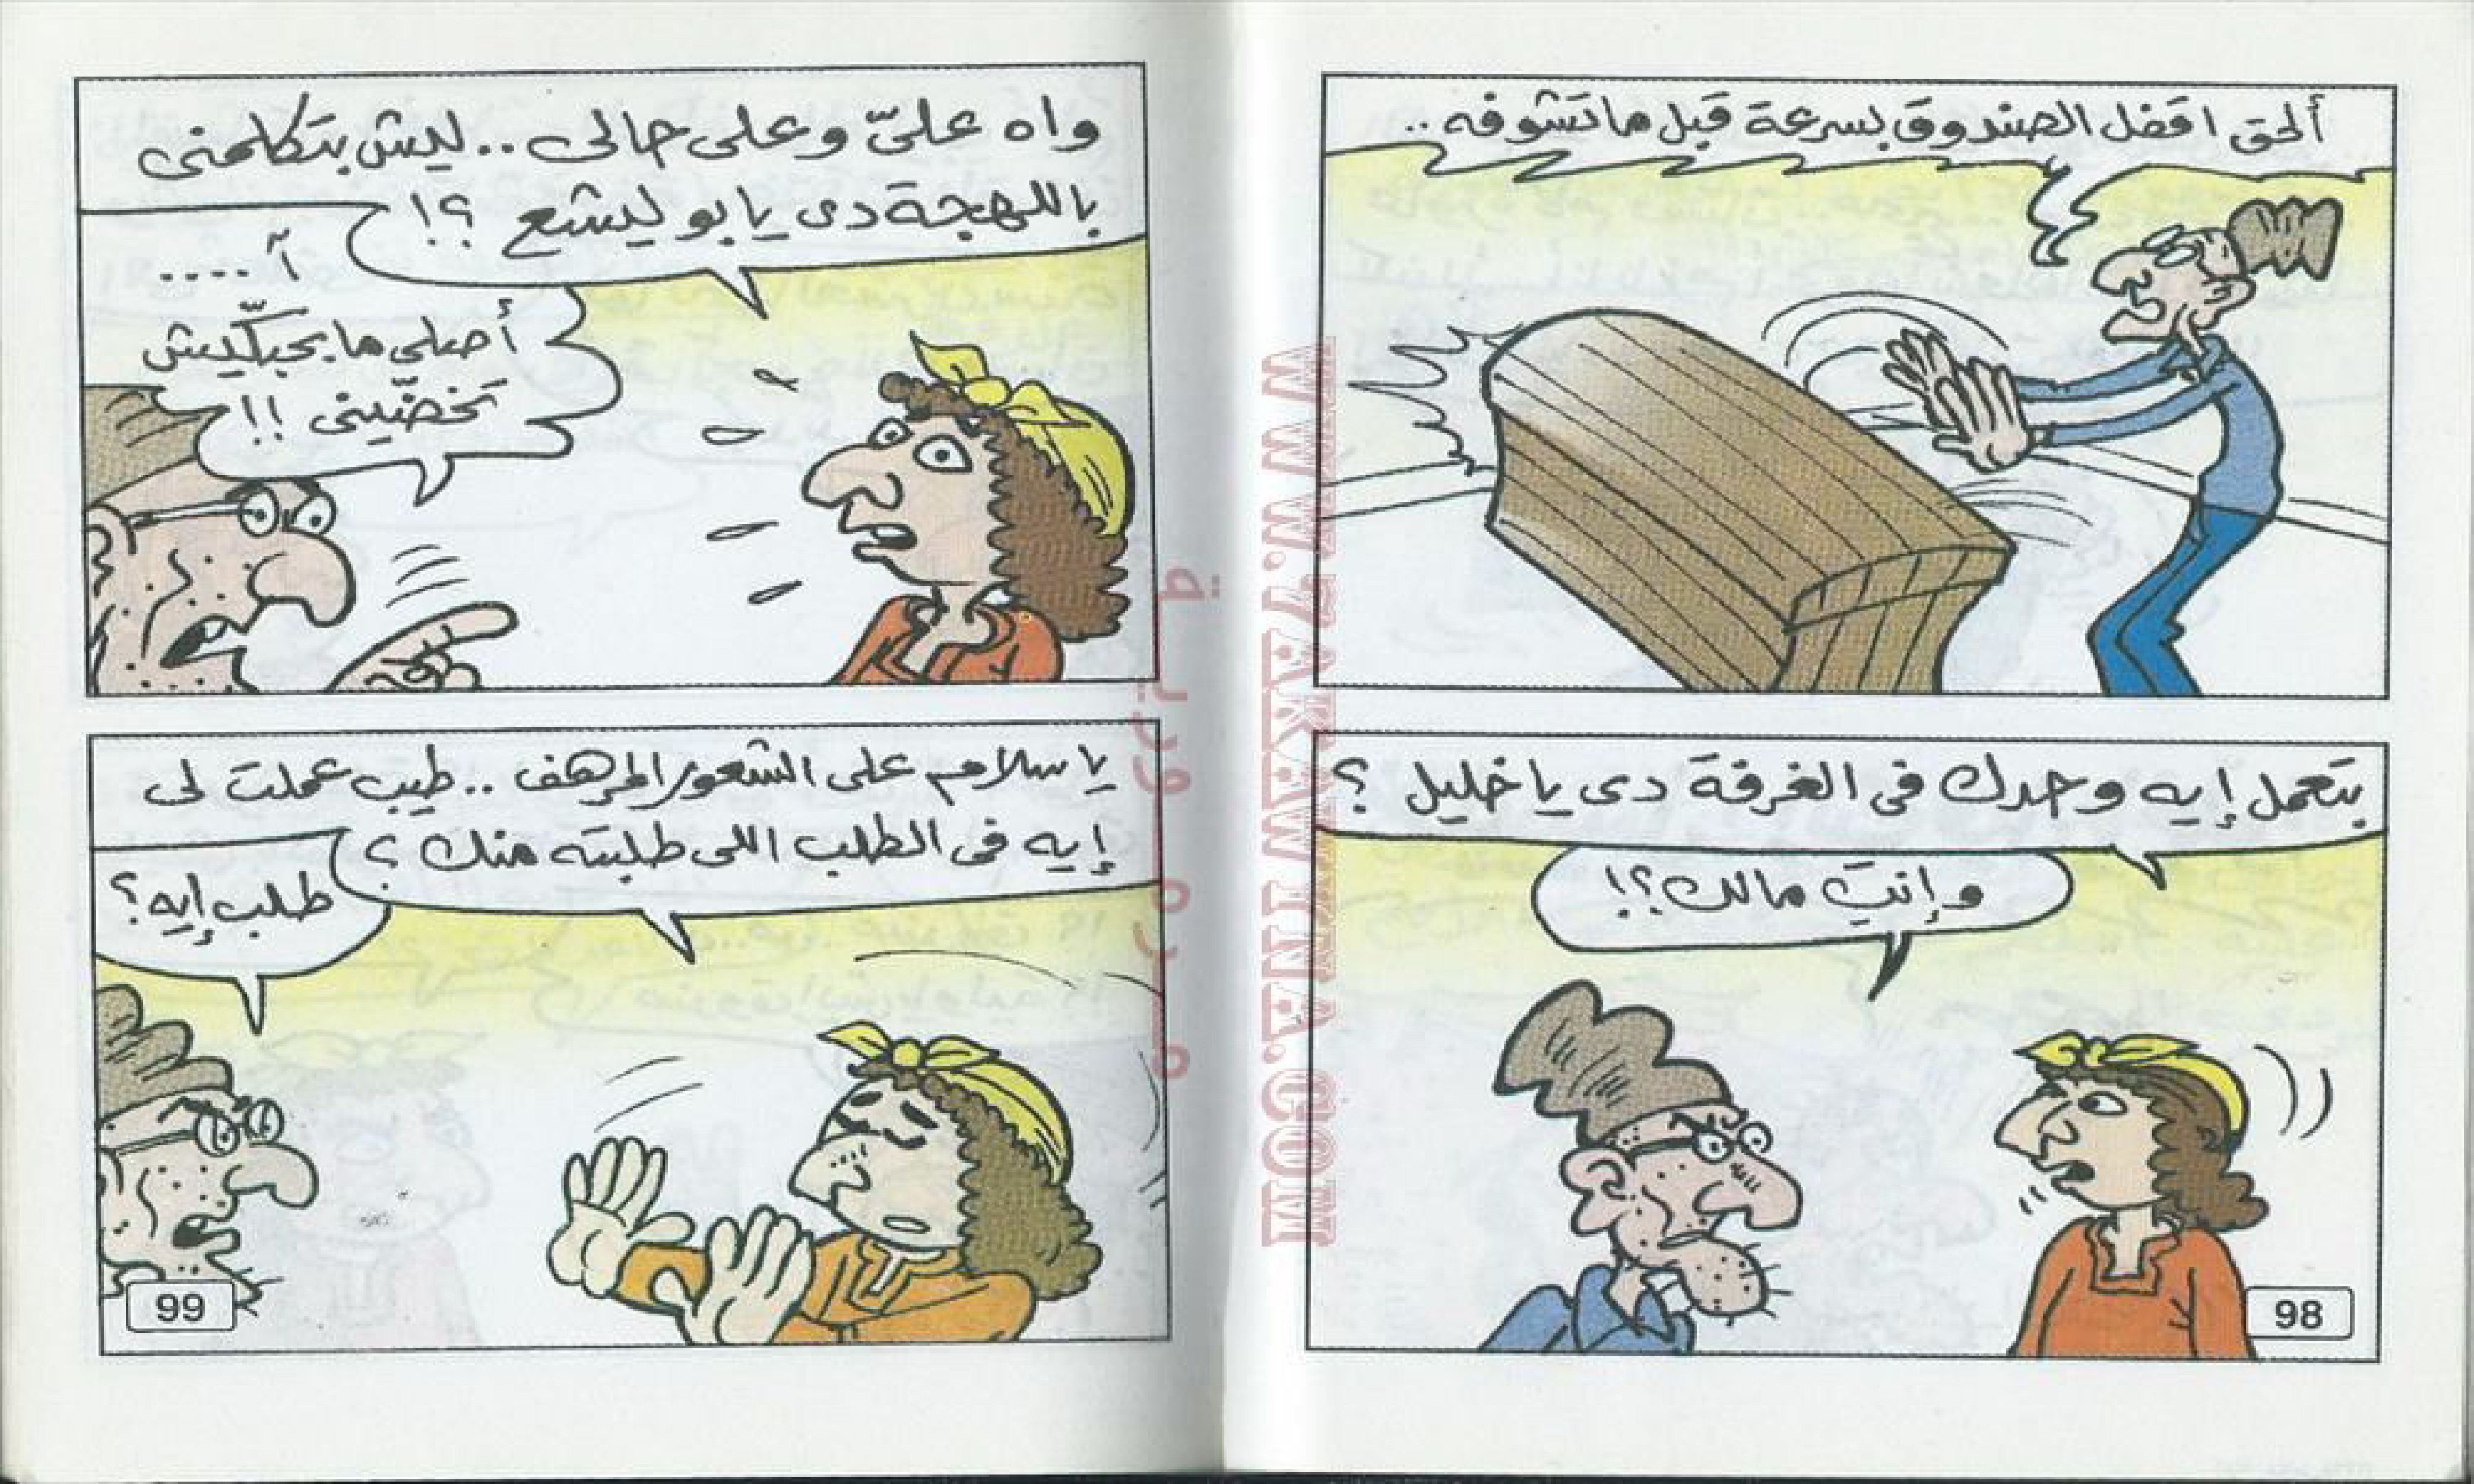 ألحق اقفل الصندوق بسرعة قبل ما تشوفه..
بتعمل إيه وحدك فى الغرفة دى يا خليل ؟
وإنتِ مالك؟!
98
واه علىّ وعلى حالى.. ليش بتكلمنى
باللهجة دى يا بو ليشع ؟!
آ ....
أصلى ما بحبكيش
تخضّينى !!
يا سلام على الشعور المرهف.. طيب عملت لى
إيه فى الطلب اللى طلبته منك ؟
طلب إيه؟
99
WWW.7AKRWENTNA.COM